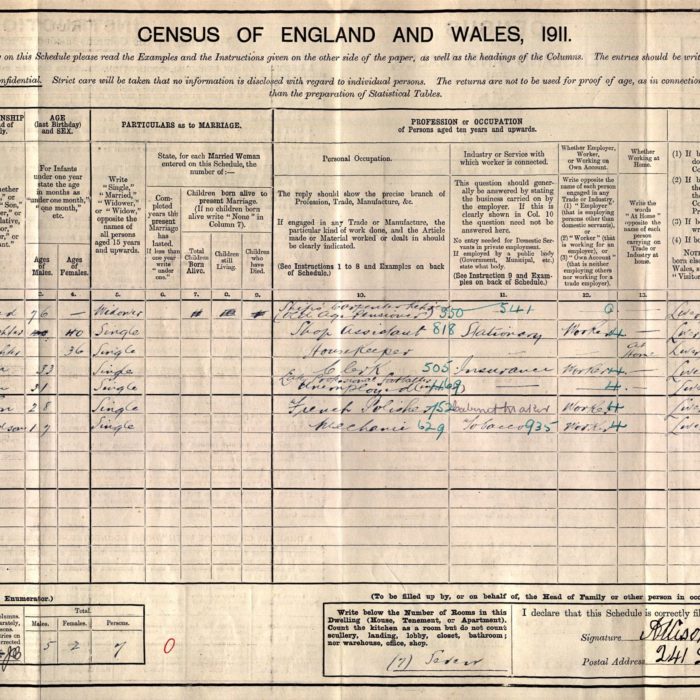 CENSUS OF ENGLAND AND WALES, 1911.
on this Schedule please read the Examples and the Instructions given on the other side of the paper, as well as the headings of the Columns. The entries should be writ
onfidential. Strict care will be taken that no information is disclosed with regard to individual persons. The returns are not to be used for proof of age, as in connection
than the preparation of Statistical Tables.
AGE
(last Birthday)
and SEX.
For Infants
under one year
state the age
in months as
"under one month,"
"one month,"
etc.
Ages
of
Males.
Ages
of
Females.
PARTICULARS as to MARRIAGE.
Write
"Single,"
"Married,"
"Widower,"
or "Widow,"
opposite the
names of
all persons
aged 15 years
and upwards.
State, for each Married Woman
entered on this Schedule, the
number of:—
Com-
pleted
years the
present
Marriage
has
lasted.
If less than
one year
write
"under
one."
Children born alive to
present Marriage.
(If no children born
alive write "None" in
Column 7).
Total
Children
Born
Alive.
Children
still
Living.
Children
who
have
Died.
PROFESSION or OCCUPATION
of Persons aged ten years and upwards.
Personal Occupation.
The reply should show the precise branch of
Profession, Trade, Manufacture, &c.
If engaged in any Trade or Manufacture, the
particular kind of work done, and the Article
made or Material worked or dealt in should
be clearly indicated.
(See Instructions 1 to 8 and Examples on
back of Schedule.)
Industry or Service with
which worker is connected.
This question should gener-
ally be answered by stating
the business carried on by
the employer. If this is
clearly shown in Col. 10
the question need not be
answered here.
No entry needed for Domestic Ser-
vants in private employment.
If employed by a public body
(Government, Municipal, etc.)
state what body.
(See Instruction 9 and Exam-
ples on back of Schedule.)
Whether Employer,
Worker,
or Working on
Own Account.
Write opposite the
name of each person
engaged in any
Trade or Industry,
(1) "Employer"
(that is employing
persons other than
domestic servants),
or
(2) "Worker" (that
is working for an
employer), or
(3) "Own Account"
(that is neither
employing others nor
working for a trade
employer).
Whether
Working at
Home.
Write the
words
"At Home"
opposite the
name of each
person
carrying on
Trade or
Industry at
home.
3. 4. 5. 6. 7. 8. 9. 10. 11. 12. 13.
76 — Widower 350 541 0
(Old Age Pensioner)
40 Single Shop Assistant 818 Stationary Worker 4
36 Single Housekeeper — — At Home
33 Single Clerk 505 Insurance Worker 4
31 Single Late Professional Footballer
Unemployed — 4
28 Single French Polisher Cabinet Maker Worker 4
17 Single Mechanic 629 Tobacco 935 Worker 4
Enumerator.)
Total.
Males. Females. Persons.
5 2 7 0
(To be filled up by, or on behalf of, the Head of Family or other person in occ
Write below the Number of Rooms in this
Dwelling (House, Tenement, or Apartment).
Count the kitchen as a room but do not count
scullery, landing, lobby, closet, bathroom;
nor warehouse, office, shop.
(7) Seven
I declare that this Schedule is correctly fil
Signature
Postal Address 241